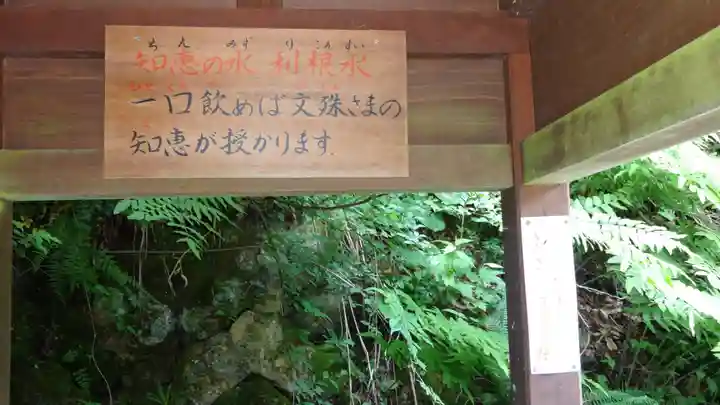 ちえ みず りこんすい
知恵の水 利根水
一口飲めば文殊さまの
知恵が授かります.